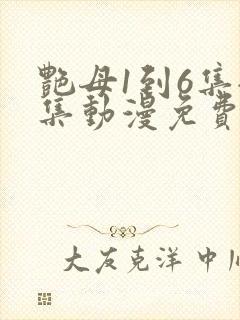 艷母1到6集
集動漫免費
大友克洋 中川